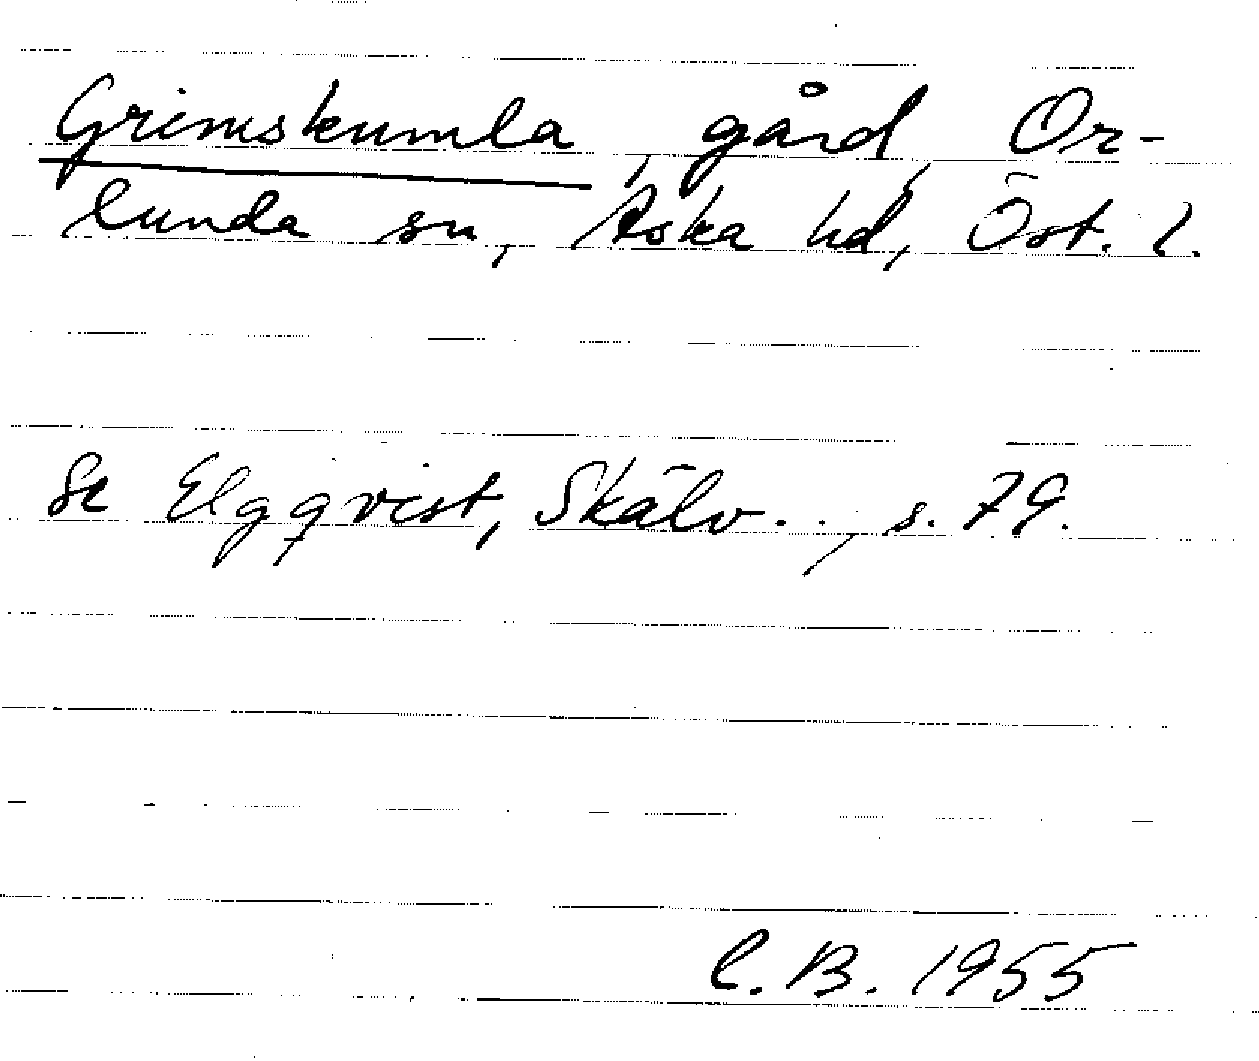 Grimskumla, gård, Or-
lunda sn, Aska hd, Öst. l.
Se Elgqvist, Skälv..., s. 79.
C.B. 1955